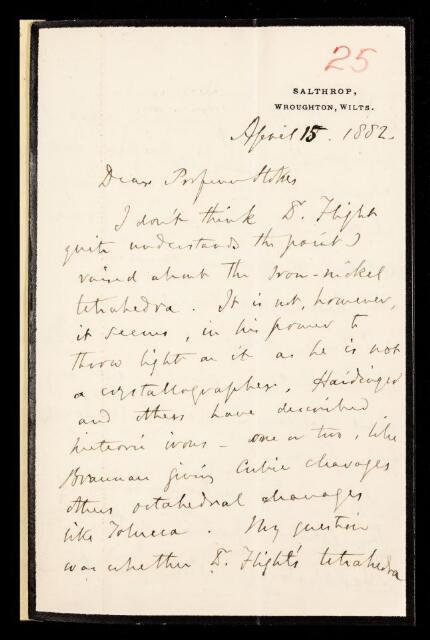 25
SALTHROP,
WROUGHTON, WILTS.
April 15. 1882.
Dear Professor Stokes
I don't think Dr. Flight
quite understands the point I
raised about the Iron-nickel
tetrahedra. It is not, however,
it seems, in his power to
throw light on it as he is not
a crystallographer. Haidinger
and others have described
meteoric irons - one or two, like
Braunau giving cubic cleavages
others octahedral cleavages
like Toluca. My question
was whether Dr. Flight's tetrahedra